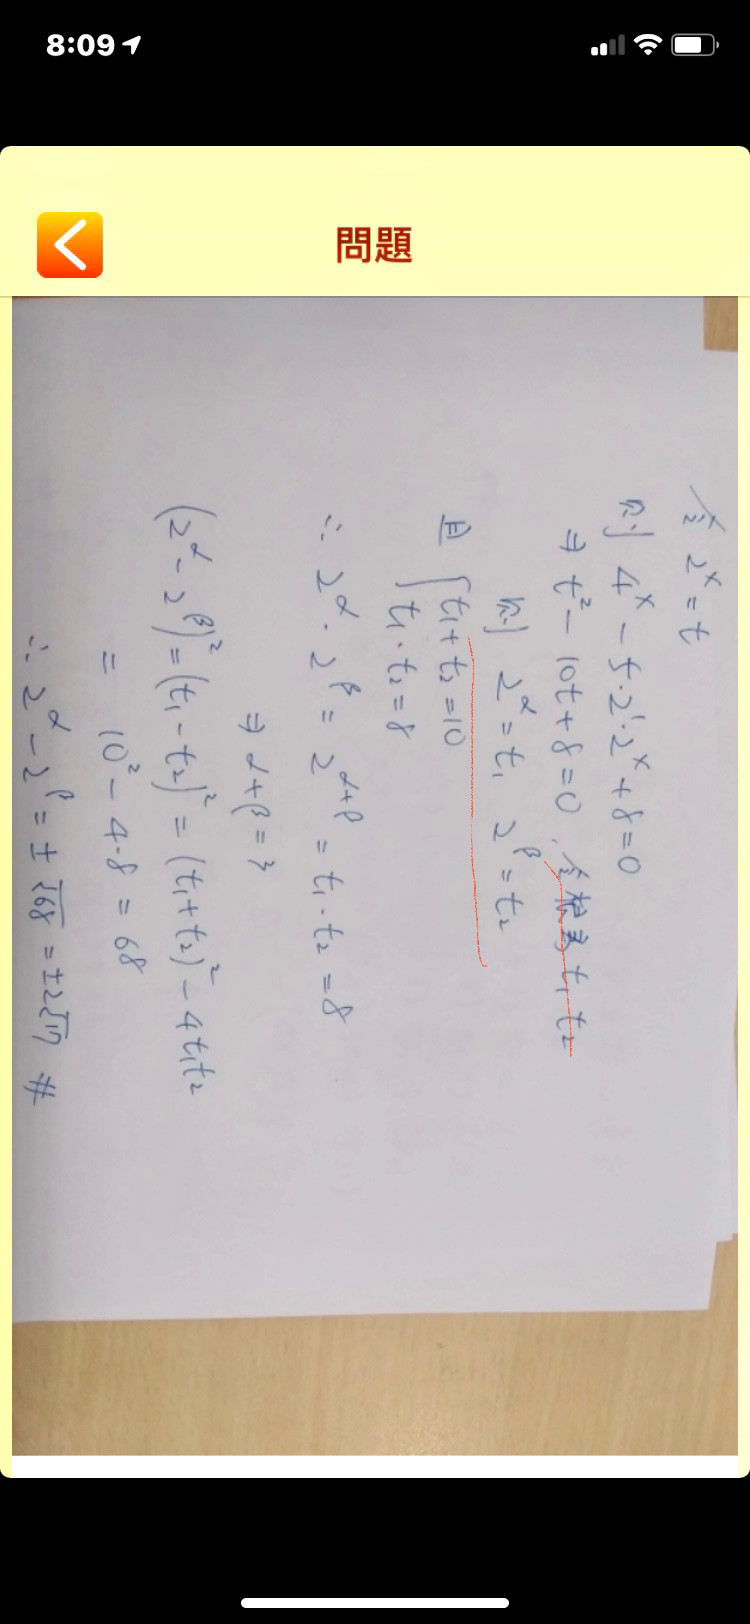 8:09
問題
令 2^x = t
則 4^x - 5·2^1·2^x + 8 = 0
⇒ t² - 10t + 8 = 0, 令根為 t₁ t₂
則 2^α = t₁ 2^β = t₂
且 { t₁ + t₂ = 10
t₁·t₂ = 8
∴ 2^α · 2^β = 2^(α+β) = t₁·t₂ = 8
⇒ α+β = 3
(2^α - 2^β)² = (t₁ - t₂)² = (t₁+t₂)² - 4t₁t₂
= 10² - 4·8 = 68
∴ 2^α - 2^β = ±√68 = ±2√17 #